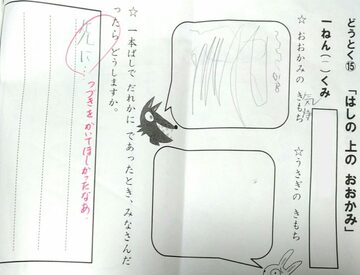 どうとく⑮ 「はしの 上の おおかみ」
一ねん（ ）くみ
☆おおかみの きもち
☆うさぎの きもち
☆ 一本ばしで だれかに であったとき、みなさんだ
ったら どうしますか。
先に
つづきをかいてほしかったなあ。